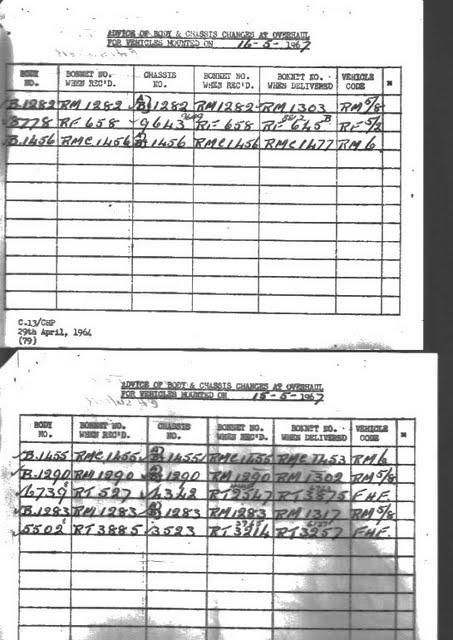 ADVICE OF BODY & CHASSIS CHANGES AT OVERHAUL
FOR VEHICLES MOUNTED ON 16-5-1967
BODY NO. BONNET NO. WHEN REC'D. CHASSIS NO. BONNET NO. WHEN REC'D. BONNET NO. WHEN DELIVERED VEHICLE CODE
B.1282 RM 1282 1282 RM 1282 RM 1303 RM 5/8
B778 RF 658 9643 RF 658 RF 645 RF 5/2
B.1456 RMC 1456 1456 RMC 1456 RMC 1477 RM 6
C.13/CHP
29th April, 1964
(79)
ADVICE OF BODY & CHASSIS CHANGES AT OVERHAUL
FOR VEHICLES MOUNTED ON 15-5-1967
BODY NO. BONNET NO. WHEN REC'D. CHASSIS NO. BONNET NO. WHEN REC'D. BONNET NO. WHEN DELIVERED VEHICLE CODE
B.1455 RMC 1455 1455 RMC 1455 RMC 1453 RM 6
B.1290 RM 1290 1290 RM 1290 RM 1302 RM 5/8
6739 RT 527 4342 RT 2547 RT 3875 FHF.
B.1283 RM 1283 1283 RM 1283 RM 1317 RM 5/8
5502 RT 3885 3523 RT 3214 RT 3257 FHF.